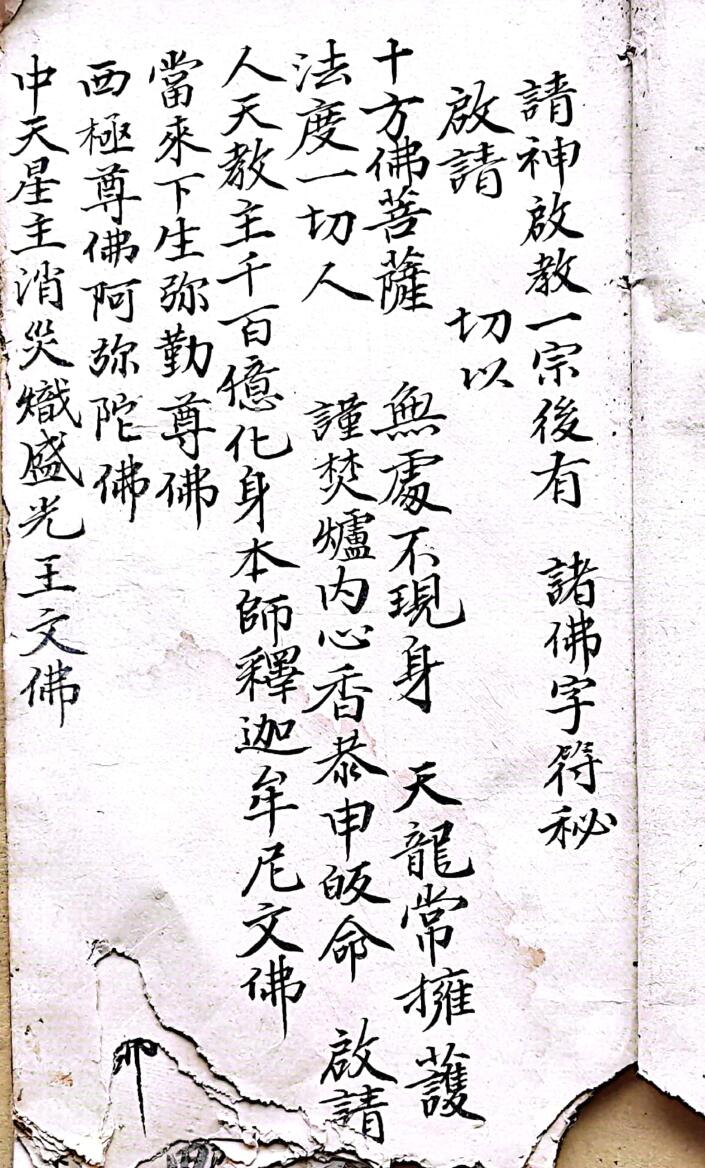 請神啟教一宗後有　諸佛字符秘
啟請　切以
十方佛菩薩　無處不現身　天龍常擁護
法度一切人　謹焚爐内心香恭申皈命　啟請
人天教主千百億化身本師釋迦牟尼文佛
當來下生弥勤尊佛
西極尊佛阿弥陀佛
中天星主消災熾盛光王文佛